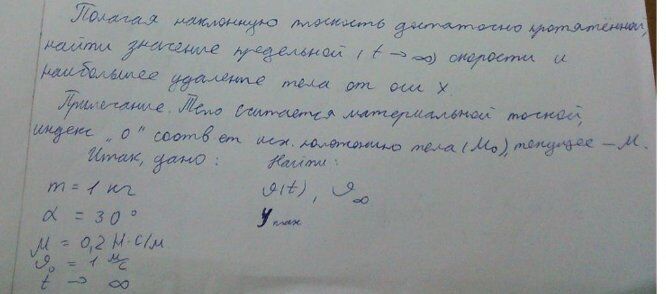 Полагая наклонную плоскость достаточно протяжённой,
найти значение предельной (t → ∞) скорости и
наибольшее удаление тела от оси X.
Примечание. Тело считается материальной точкой,
индекс „0" соотв ет исх. положению тела (M₀), текущее – M.
Итак, дано: Найти:
m = 1 кг ϑ(t), ϑ∞
α = 30° y max
μ = 0,2 Н·с/м
ϑ₀ = 1 м/с
t → ∞